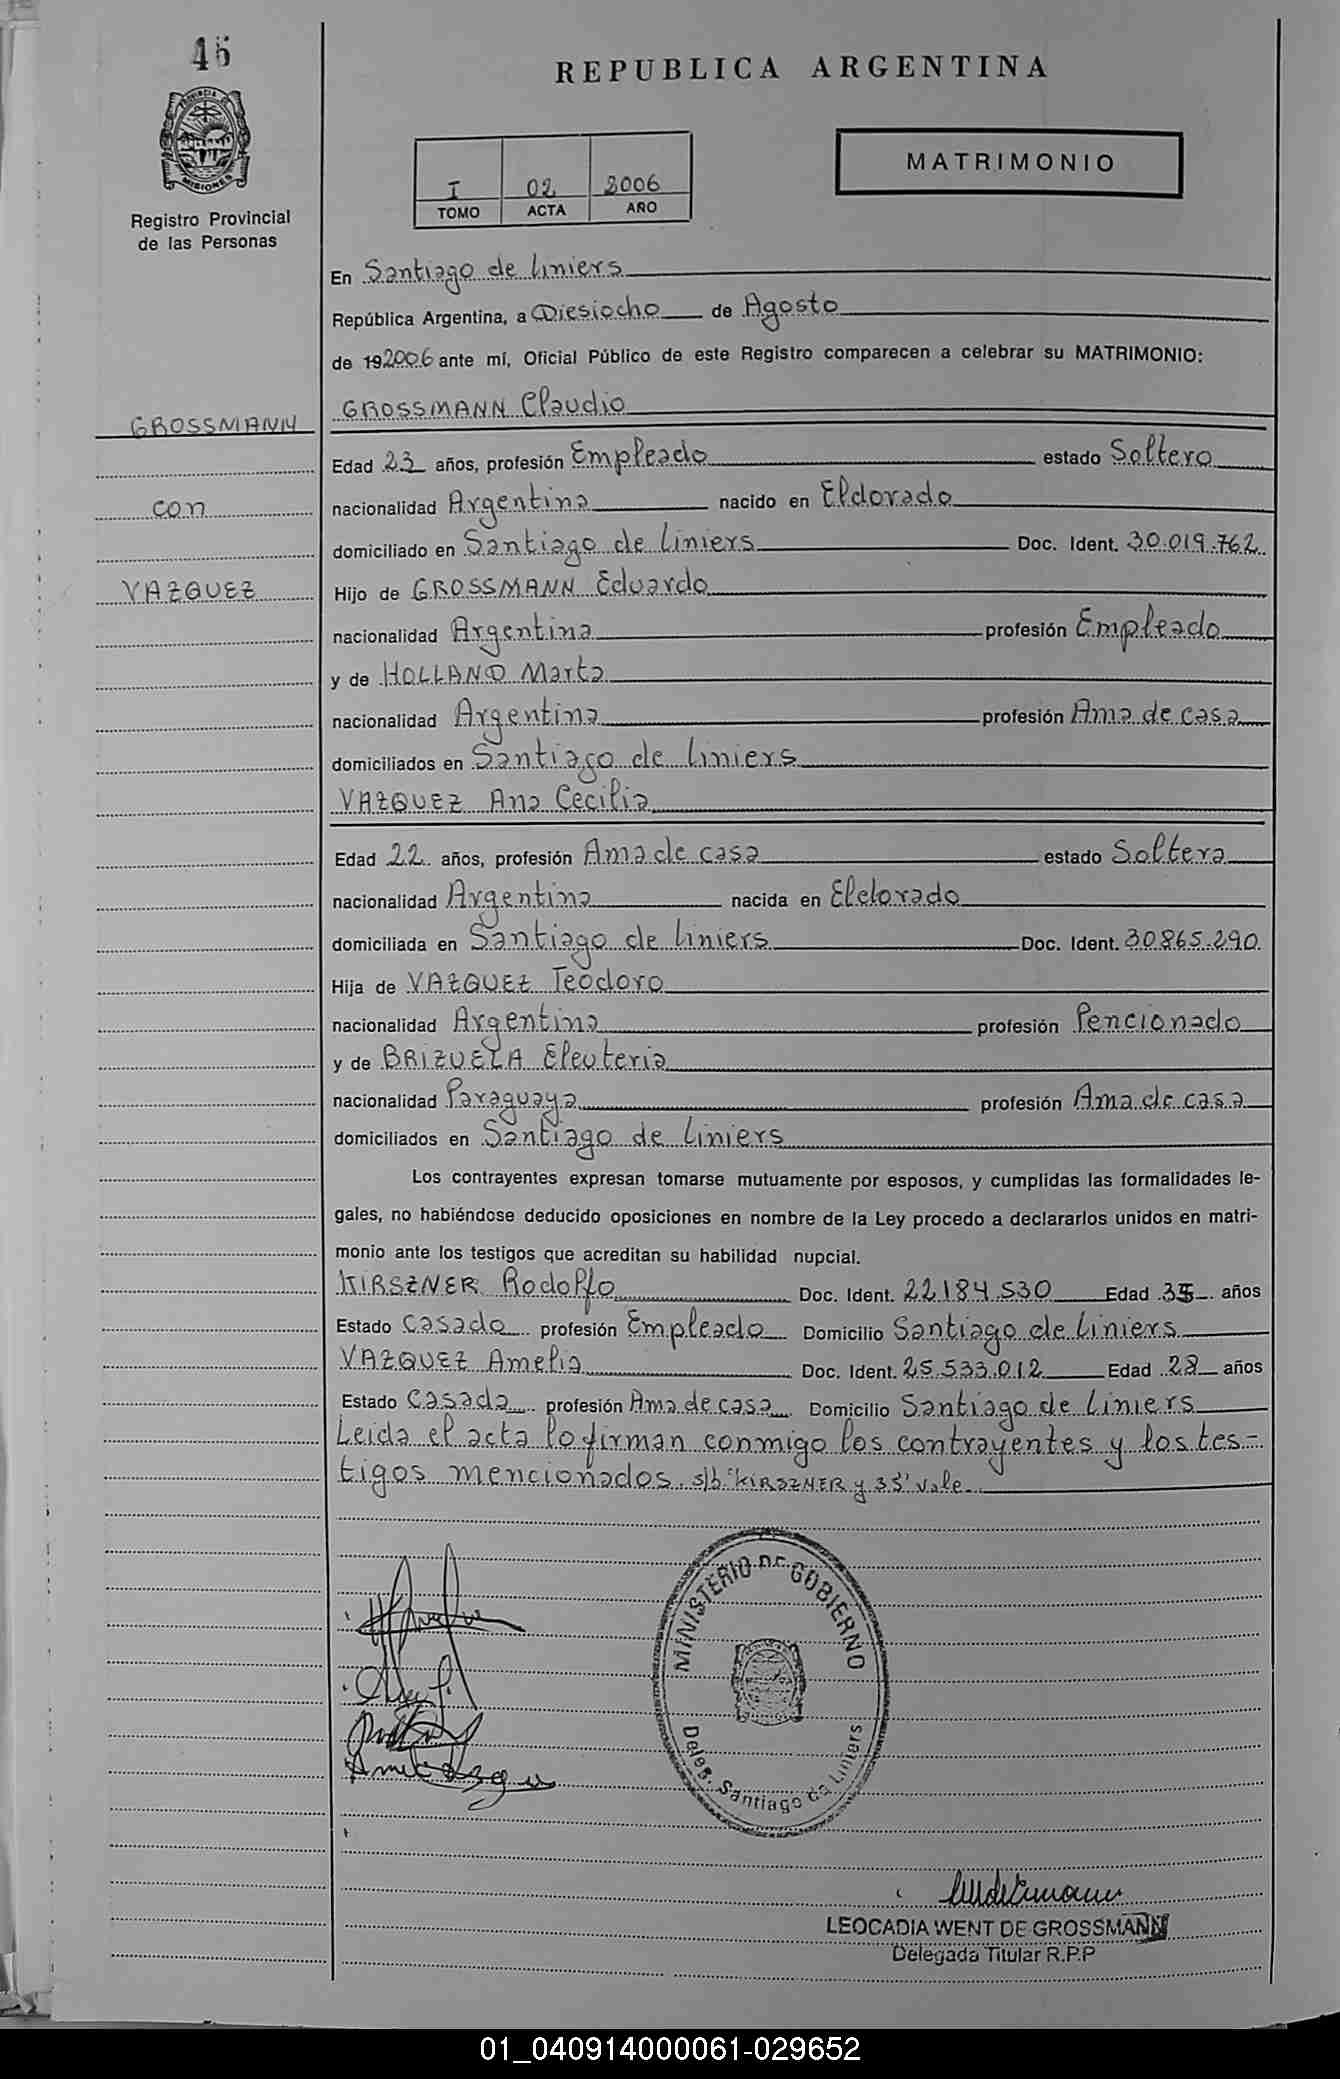 46
REPUBLICA ARGENTINA
MISIONES
Registro Provincial
de las Personas
I 02 2006
TOMO ACTA AÑO
MATRIMONIO
En Santiago de Liniers
República Argentina, a Diesiocho de Agosto
de 192006 ante mí, Oficial Público de este Registro comparecen a celebrar su MATRIMONIO:
GROSSMANN Claudio
GROSSMANN
con
VAZQUEZ
Edad 23 años, profesión Empleado estado Soltero
nacionalidad Argentina nacido en Eldorado
domiciliado en Santiago de Liniers Doc. Ident. 30.019.762
Hijo de GROSSMANN Eduardo
nacionalidad Argentina profesión Empleado
y de HOLLAND Marta
nacionalidad Argentina profesión Ama de casa
domiciliados en Santiago de Liniers
VAZQUEZ Ana Cecilia
Edad 22 años, profesión Ama de casa estado Soltera
nacionalidad Argentina nacida en Eldorado
domiciliada en Santiago de Liniers Doc. Ident. 30865.290
Hija de VAZQUEZ Teodoro
nacionalidad Argentina profesión Pencionado
y de BRIZUELA Eleuteria
nacionalidad Paraguaya profesión Ama de casa
domiciliados en Santiago de Liniers
Los contrayentes expresan tomarse mutuamente por esposos, y cumplidas las formalidades le-
gales, no habiéndose deducido oposiciones en nombre de la Ley procedo a declararlos unidos en matri-
monio ante los testigos que acreditan su habilidad nupcial.
KIRSZNER Rodolfo Doc. Ident. 22.184.530 Edad 35 años
Estado Casado profesión Empleado Domicilio Santiago de Liniers
VAZQUEZ Amelia Doc. Ident. 25.533.012 Edad 28 años
Estado Casada profesión Ama de casa Domicilio Santiago de Liniers
Leida el acta lo firman conmigo los contrayentes y los tes-
tigos mencionados. s/b "KIRSZNER y 35" vale.
MINISTERIO DE GOBIERNO
Deleg. Santiago de Liniers
LEOCADIA WENT DE GROSSMANN
Delegada Titular R.P.P
01_040914000061-029652